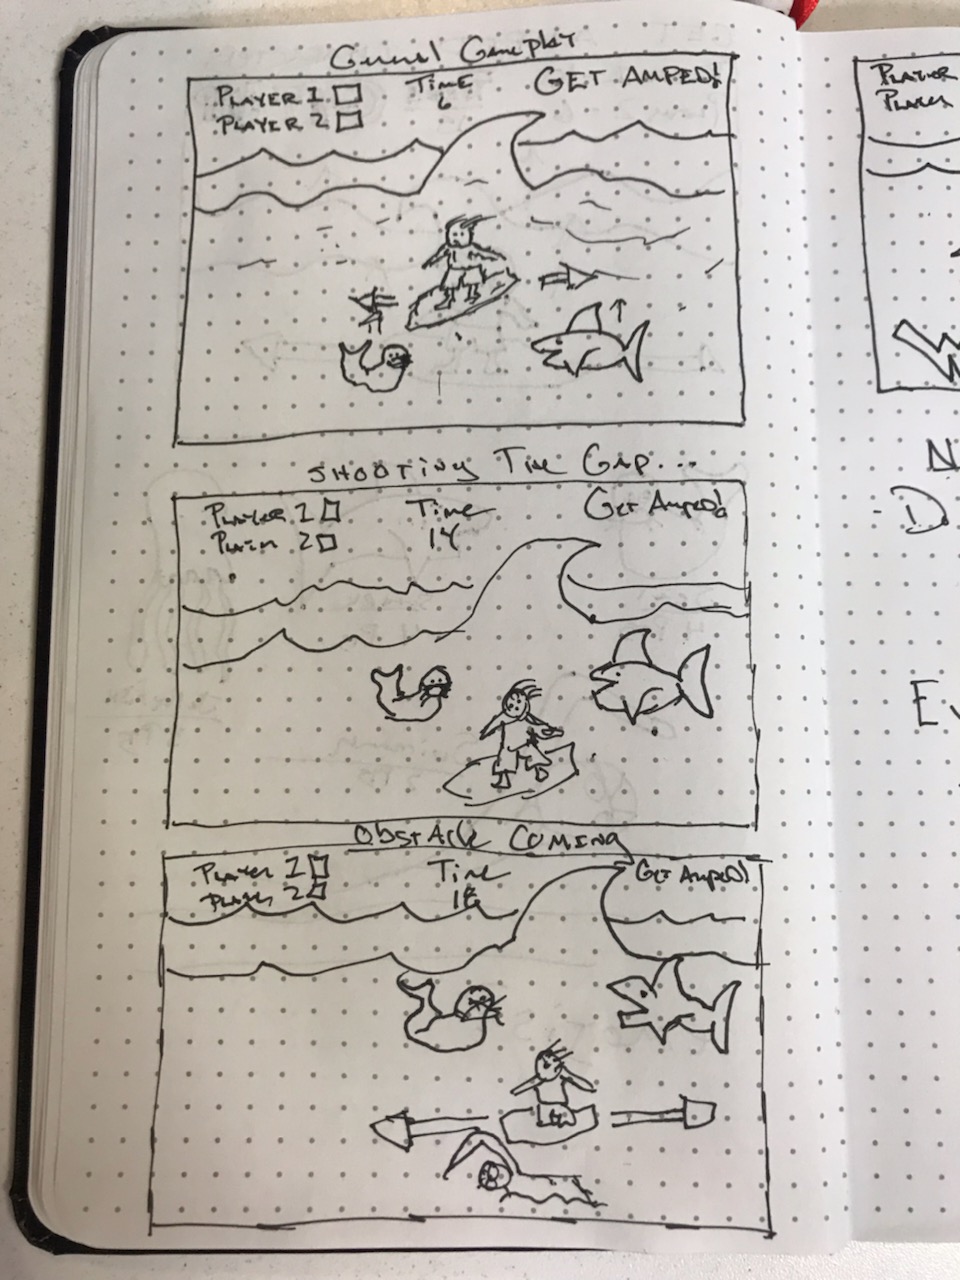 General Gameplay
PLAYER 1
PLAYER 2
TIME
6
GET AMPED!
SHOOTING THE GAP...
PLAYER 1
2
Time
14
Get Amped!
ObstAcle COMING
PLAYER 1
PLAYER 2
Time
18
Get Amped!
PLAYER
PLAYER
N
D
Ev